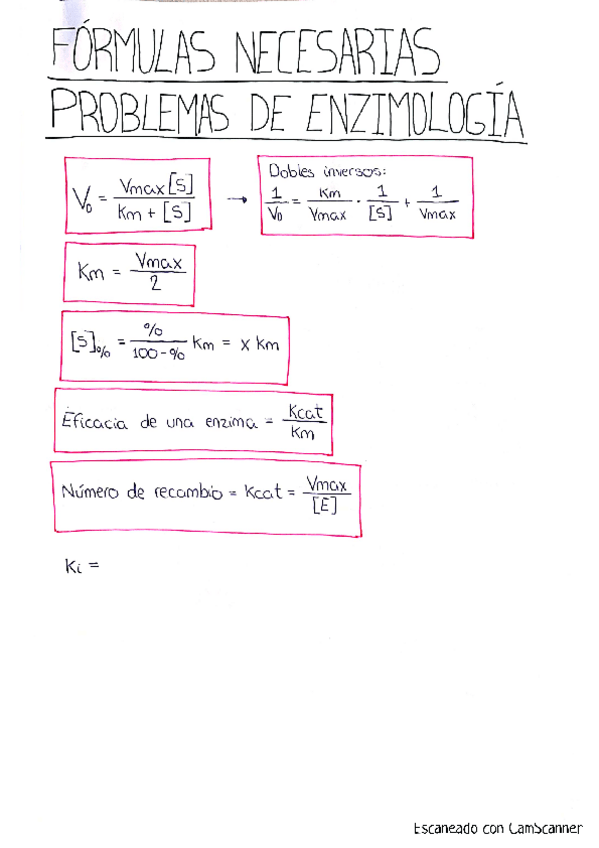 FÓRMULAS NECESARIAS
PROBLEMAS DE ENZIMOLOGÍA
V₀ = Vmax [S] / Km + [S] →
Dobles inversos:
1/V₀ = Km/Vmax · 1/[S] + 1/Vmax
Km = Vmax/2
[S]% = %/100-% Km = x Km
Eficacia de una enzima = Kcat/Km
Número de recambio = Kcat = Vmax/[E]
Ki =
Escaneado con CamScanner